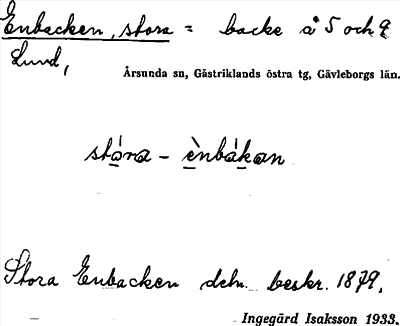 Enbacken, stora = backe å 5 och 9
Lund,
Årsunda sn, Gästriklands östra tg, Gävleborgs län.
stóra - ènbákan
Stora Enbacken deln. beskr. 1879.
Ingegärd Isaksson 1933.